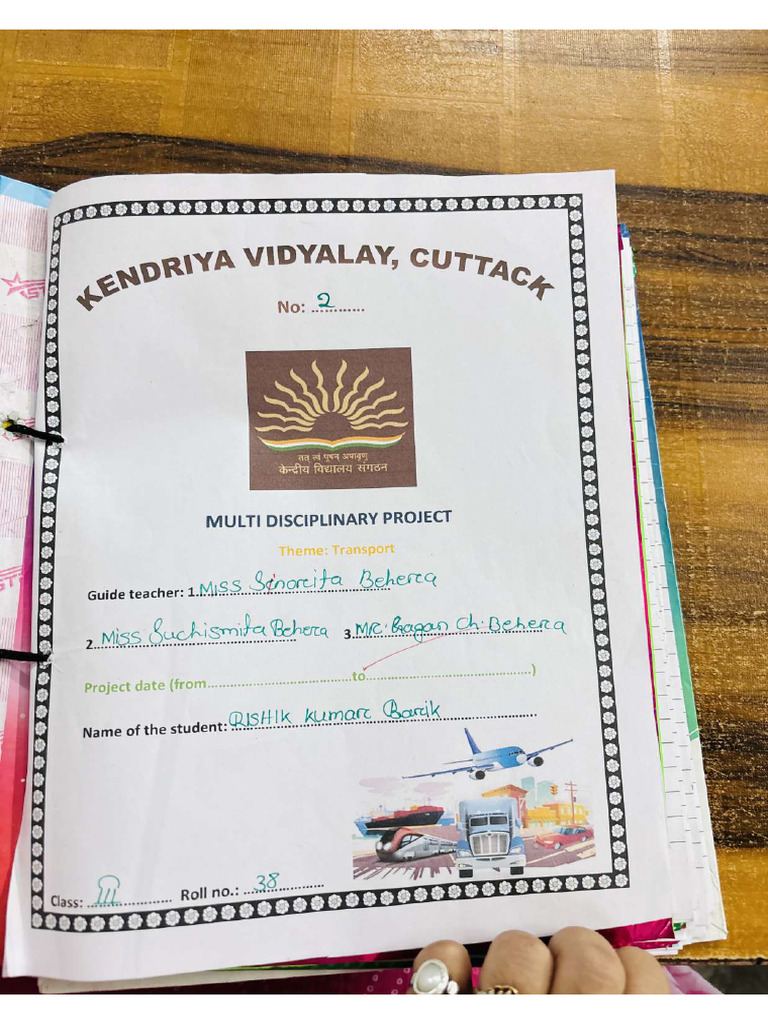 KENDRIYA VIDYALAY, CUTTACK
No: 2
तत् त्वं पूषन् अपावृणु
केन्द्रीय विद्यालय संगठन
MULTI DISCIPLINARY PROJECT
Theme: Transport
Guide teacher: 1. Miss Sinorcita Beherca
2. Miss Suchismita Beherca 3. Mrc. Gagan Ch. Beherca
Project date (from..............................to..............................)
Name of the student: RISHIK Kumarc Barcik
Class: III Roll no.: 38